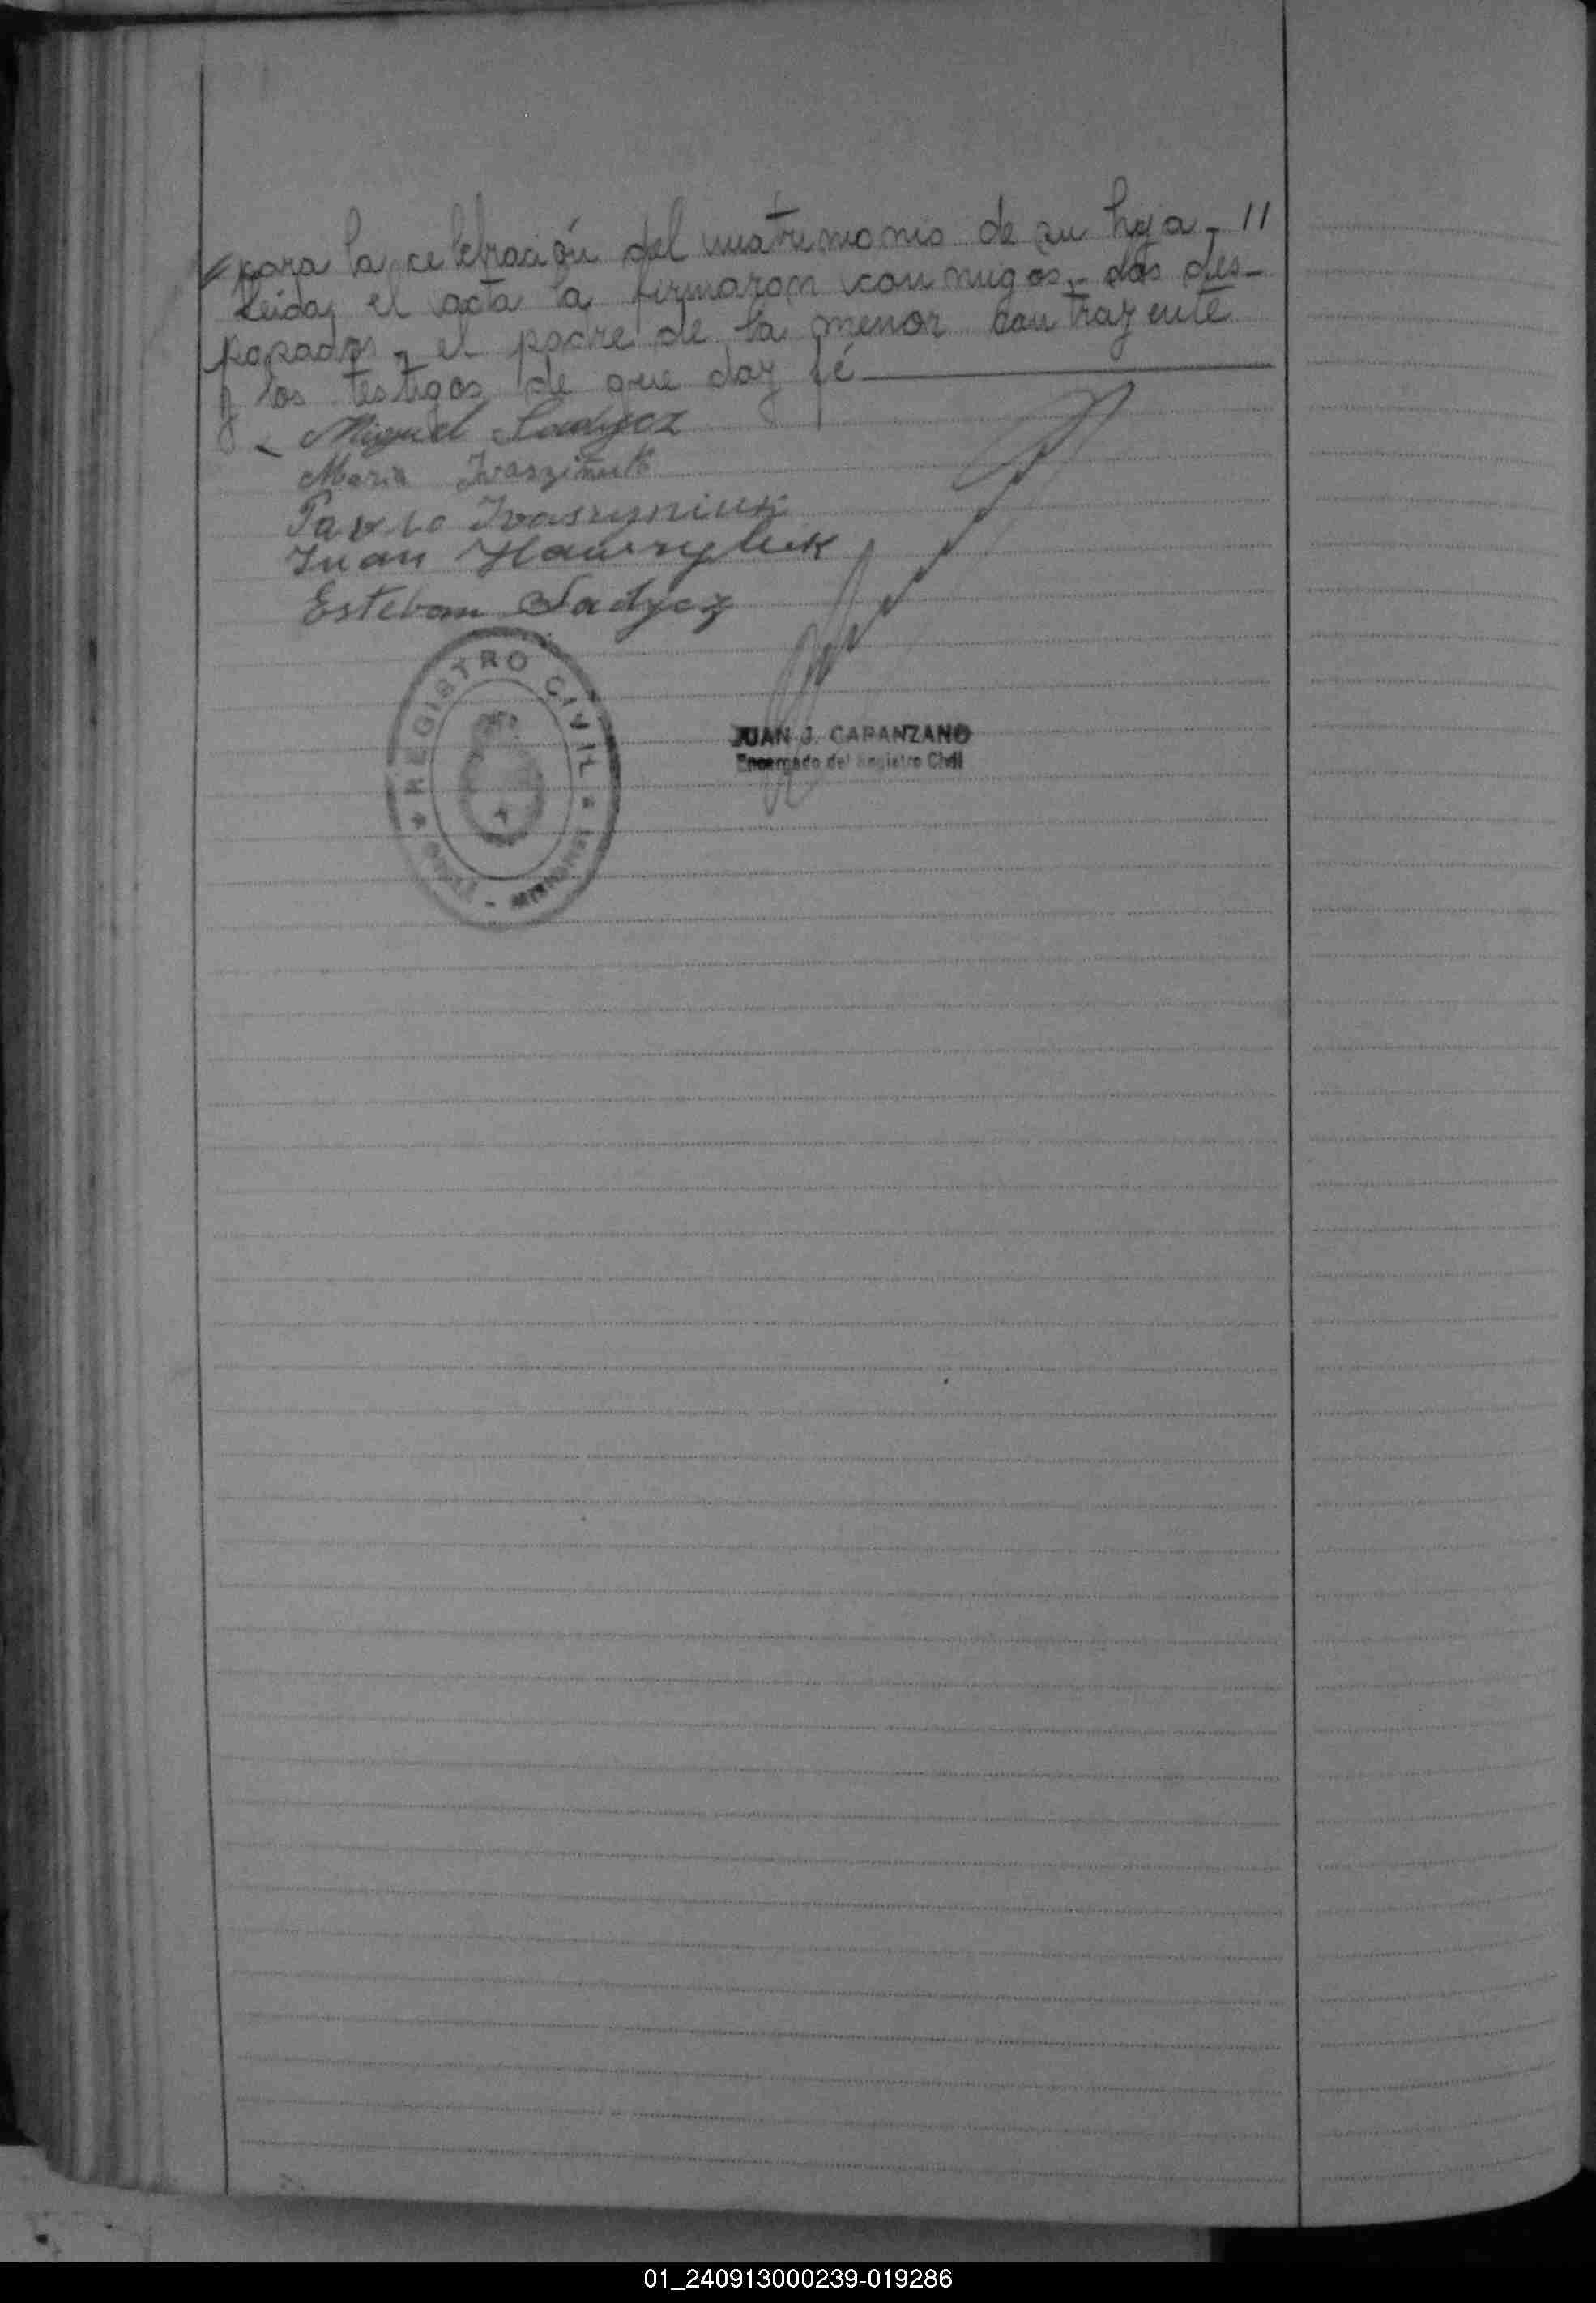 para la celebración del matrimonio de su hija - //
Leida el acta la firmaron conmigo, los des-
posados, el padre de la menor contrayente
y los testigos de que doy fé
Miguel Sadycz
Maria Iwaszinuk
Pavlo Iwaszyniuk
Juan Hawryluk
Esteban Sadycz
REGISTRO CIVIL
MISIONES
JUAN J. CAPANZANO
Encargado del Registro Civil
01_240913000239-019286